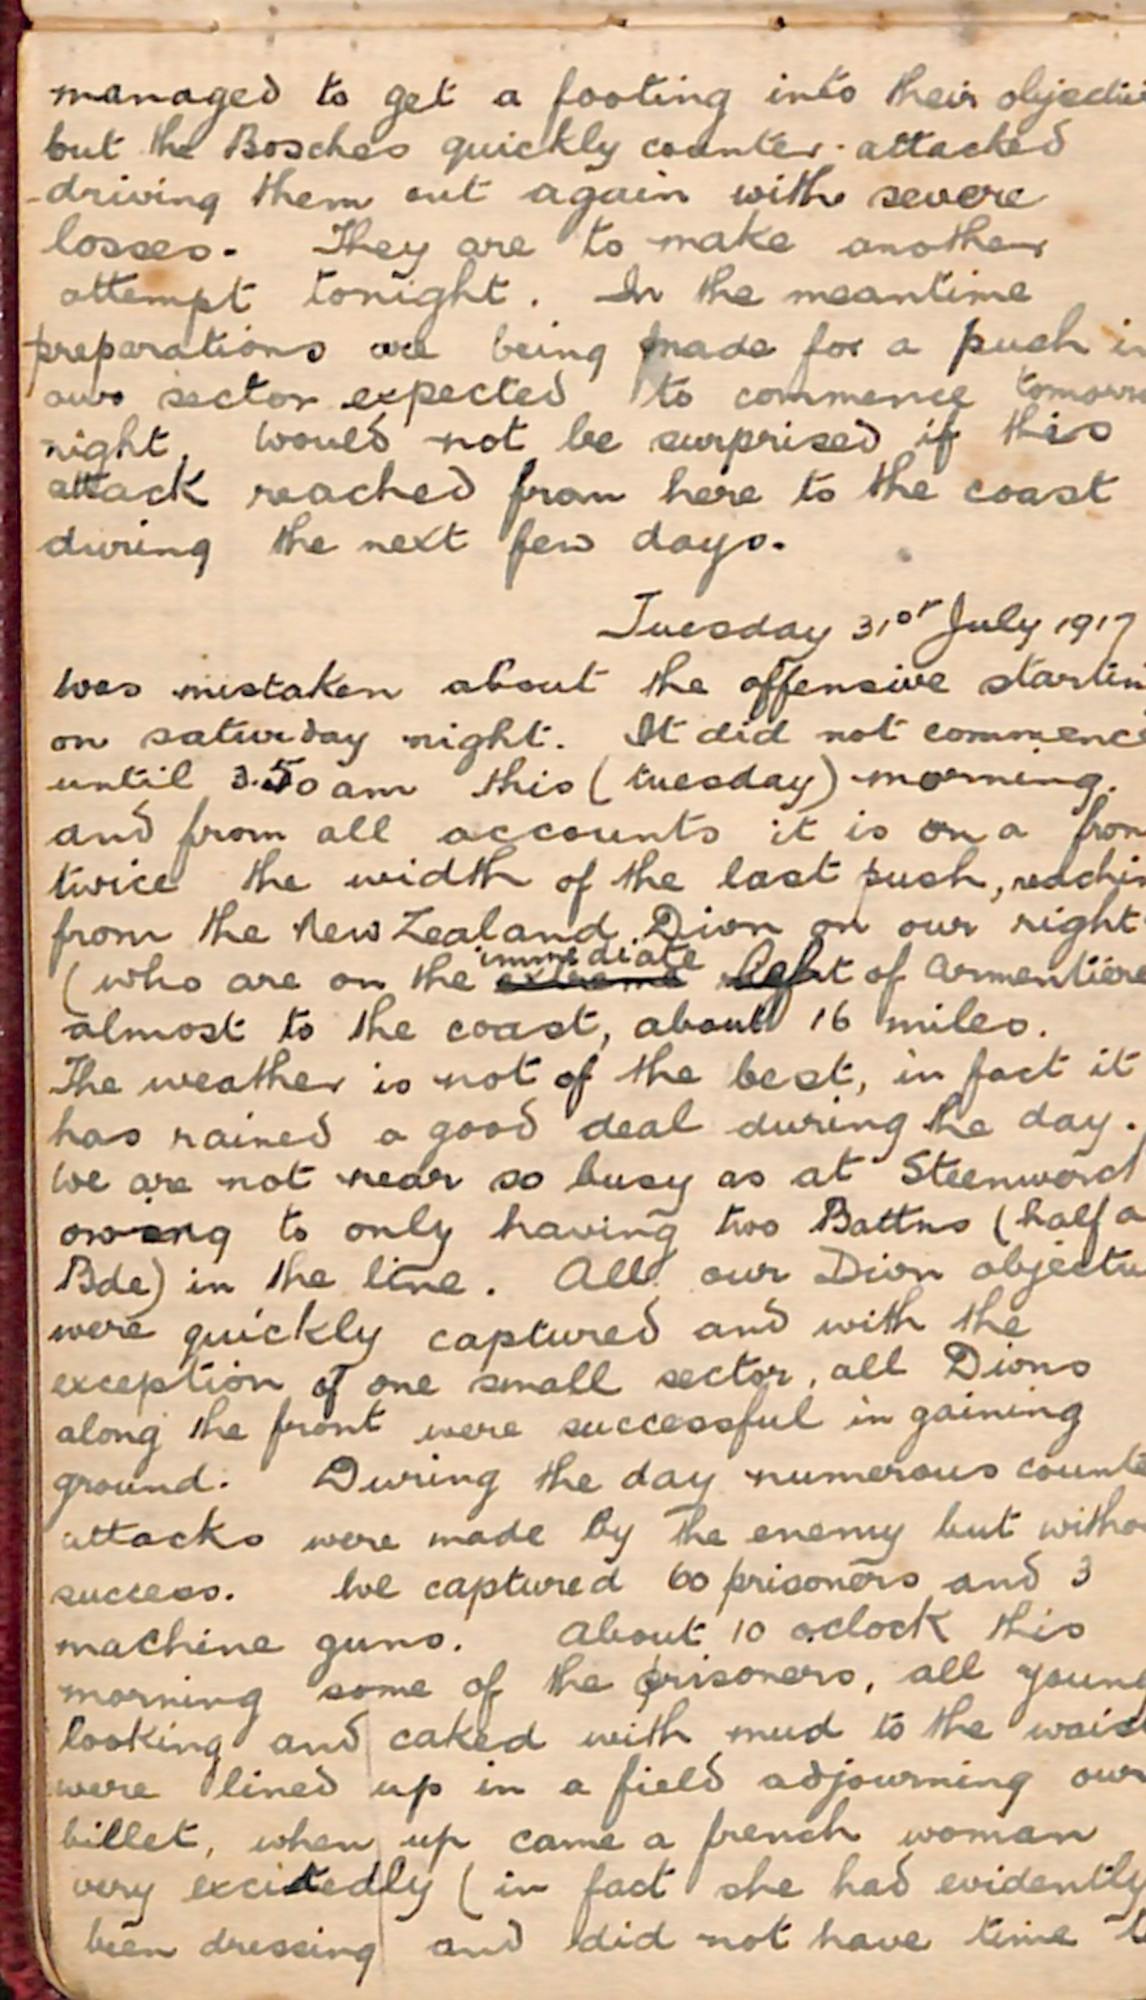 managed to get a footing into their objectiv
but the Bosches quickly counter-attacked
driving them out again with severe
losses. They are to make another
attempt tonight. In the meantime
preparations are being made for a push in
our sector expected to commence tomorro
night. Would not be surprised if this
attack reached from here to the coast
during the next few days.
Tuesday 31st July 1917
Was mistaken about the offensive startin
on saturday night. It did not commence
until 3.50 am this (tuesday) morning.
and from all accounts it is on a fron
twice the width of the last push, reachin
from the New Zealand Dion on our right
(who are on the extreme immediate left of Armentiere
almost to the coast, about 16 miles.
The weather is not of the best, in fact it
has rained a good deal during the day.
We are not near so busy as at Steenwerck
owing to only having two Battns (half a
Bde) in the line. All our Dion objectiv
were quickly captured and with the
exception of one small sector, all Dions
along the front were successful in gaining
ground. During the day numerous counte
attacks were made by the enemy but witho
success. We captured 60 prisoners and 3
machine guns. About 10 oclock this
morning some of the prisoners, all young
looking and caked with mud to the wais
were lined up in a field adjourning our
billet, when up came a french woman
very excitedly (in fact she had evidently
been dressing and did not have time t